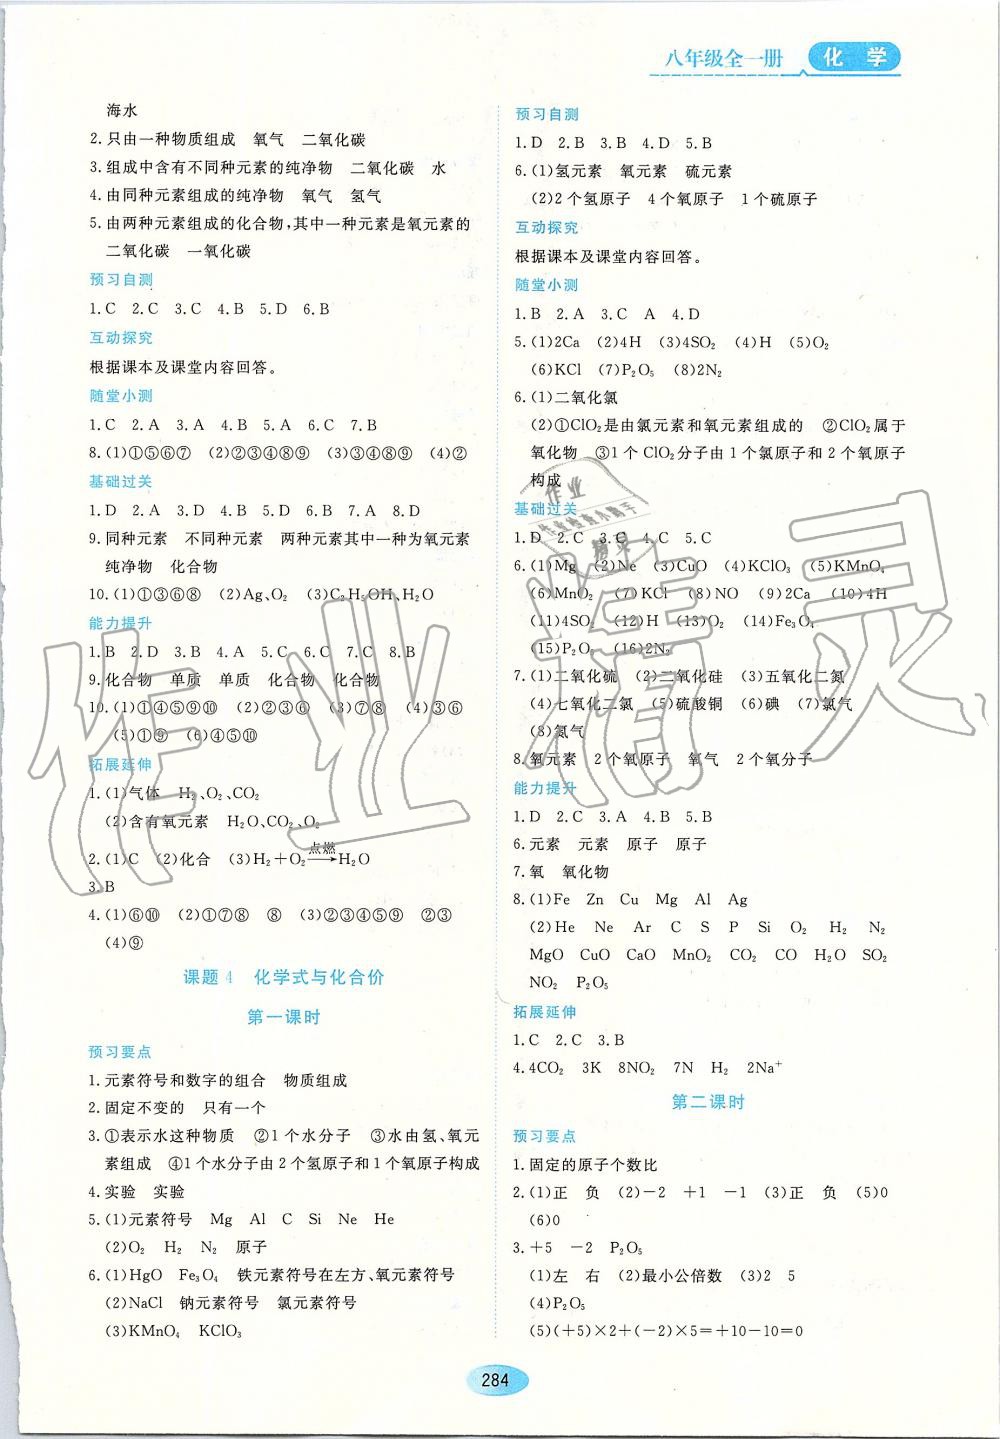 八年级全一册 化学
海水
2.只由一种物质组成 氧气 二氧化碳
3.组成中含有不同种元素的纯净物 二氧化碳 水
4.由同种元素组成的纯净物 氧气 氢气
5.由两种元素组成的化合物,其中一种元素是氧元素的
二氧化碳 一氧化碳
预习自测
1.C 2.C 3.C 4.B 5.D 6.B
互动探究
根据课本及课堂内容回答。
随堂小测
1.C 2.A 3.A 4.B 5.A 6.C 7.B
8.(1)①⑤⑥⑦ (2)②③④⑧⑨ (3)③④⑧⑨ (4)②
基础过关
1.D 2.A 3.D 4.B 5.D 6.B 7.A 8.D
9.同种元素 不同种元素 两种元素其中一种为氧元素
纯净物 化合物
10.(1)①③⑥⑧ (2)Ag、O₂ (3)C₂H₅OH、H₂O
能力提升
1.B 2.D 3.B 4.A 5.C 6.C 7.C 8.B
9.化合物 单质 单质 化合物 化合物
10.(1)①④⑤⑨⑩ (2)②③⑤ (3)⑦⑧ (4)③⑥
(5)①⑨ (6)④⑤⑩
拓展延伸
1.(1)气体 H₂、O₂、CO₂
(2)含有氧元素 H₂O、CO₂、O₂
2.(1)C (2)化合 (3)H₂+O₂ 点燃→H₂O
3.B
4.(1)⑥⑩ (2)①⑦⑧ ⑧ (3)②③④⑤⑨ ②③
(4)⑨
课题4 化学式与化合价
第一课时
预习要点
1.元素符号和数字的组合 物质组成
2.固定不变的 只有一个
3.①表示水这种物质 ②1个水分子 ③水由氢、氧元
素组成 ④1个水分子由2个氢原子和1个氧原子构成
4.实验 实验
5.(1)元素符号 Mg Al C Si Ne He
(2)O₂ H₂ N₂ 原子
6.(1)HgO Fe₃O₄ 铁元素符号在左方、氧元素符号
(2)NaCl 钠元素符号 氯元素符号
(3)KMnO₄ KClO₃
预习自测
1.D 2.B 3.B 4.D 5.B
6.(1)氢元素 氧元素 硫元素
(2)2个氢原子 4个氧原子 1个硫原子
互动探究
根据课本及课堂内容回答。
随堂小测
1.B 2.A 3.C A 4.D
5.(1)2Ca (2)4H (3)4SO₂ (4)H (5)O₂
(6)KCl (7)P₂O₅ (8)2N₂
6.(1)二氧化氯
(2)①ClO₂是由氯元素和氧元素组成的 ②ClO₂属于
氧化物 ③1个ClO₂分子由1个氯原子和2个氧原子
构成
基础过关
1.D 2.C 3.C 4.C 5.C
6.(1)Mg (2)Ne (3)CuO (4)KClO₃ (5)KMnO₄
(6)MnO₂ (7)KCl (8)NO (9)2Ca (10)4H
(11)4SO₂ (12)H (13)O₂ (14)Fe₃O₄
(15)P₂O₅ (16)2N₂
7.(1)二氧化硫 (2)二氧化硅 (3)五氧化二氮
(4)七氧化二氯 (5)硫酸铜 (6)碘 (7)氯气
(8)氮气
8.氧元素 2个氧原子 氧气 2个氧分子
能力提升
1.D 2.C 3.A 4.B 5.B
6.元素 元素 原子 原子
7.氧 氧化物
8.(1)Fe Zn Cu Mg Al Ag
(2)He Ne Ar C S P Si O₂ H₂ N₂
MgO CuO CaO MnO₂ CO₂ CO SO₂
NO₂ P₂O₅
拓展延伸
1.C 2.C 3.B
4.4CO₂ 3K 8NO₂ 7N H₂ 2Na⁺
第二课时
预习要点
1.固定的原子个数比
2.(1)正 负 (2)-2 +1 -1 (3)正 负 (5)0
(6)0
3.+5 -2 P₂O₅
(1)左 右 (2)最小公倍数 (3)2 5
(4)P₂O₅
(5)(+5)×2+(-2)×5=+10-10=0
284
作业精灵